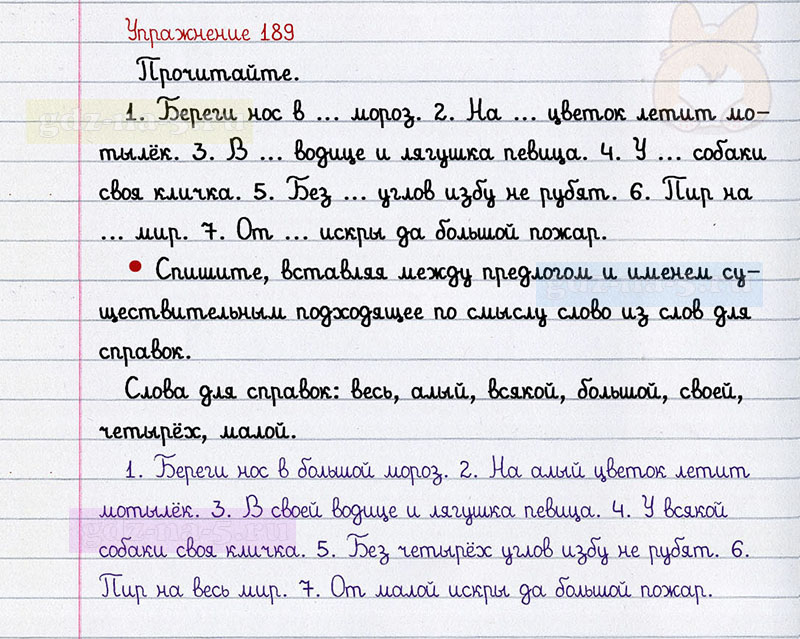 Упражнение 189
Прочитайте.
1. Береги нос в ... мороз. 2. На ... цветок летит мо-
тылёк. 3. В ... водице и лягушка певица. 4. У ... собаки
своя кличка. 5. Без ... углов избу не рубят. 6. Пир на
... мир. 7. От ... искры да большой пожар.
• Спишите, вставляя между предлогом и именем су-
ществительным подходящее по смыслу слово из слов для
справок.
Слова для справок: весь, алый, всякой, большой, своей,
четырёх, малой.
1. Береги нос в большой мороз. 2. На алый цветок летит
мотылёк. 3. В своей водице и лягушка певица. 4. У всякой
собаки своя кличка. 5. Без четырёх углов избу не рубят. 6.
Пир на весь мир. 7. От малой искры да большой пожар.